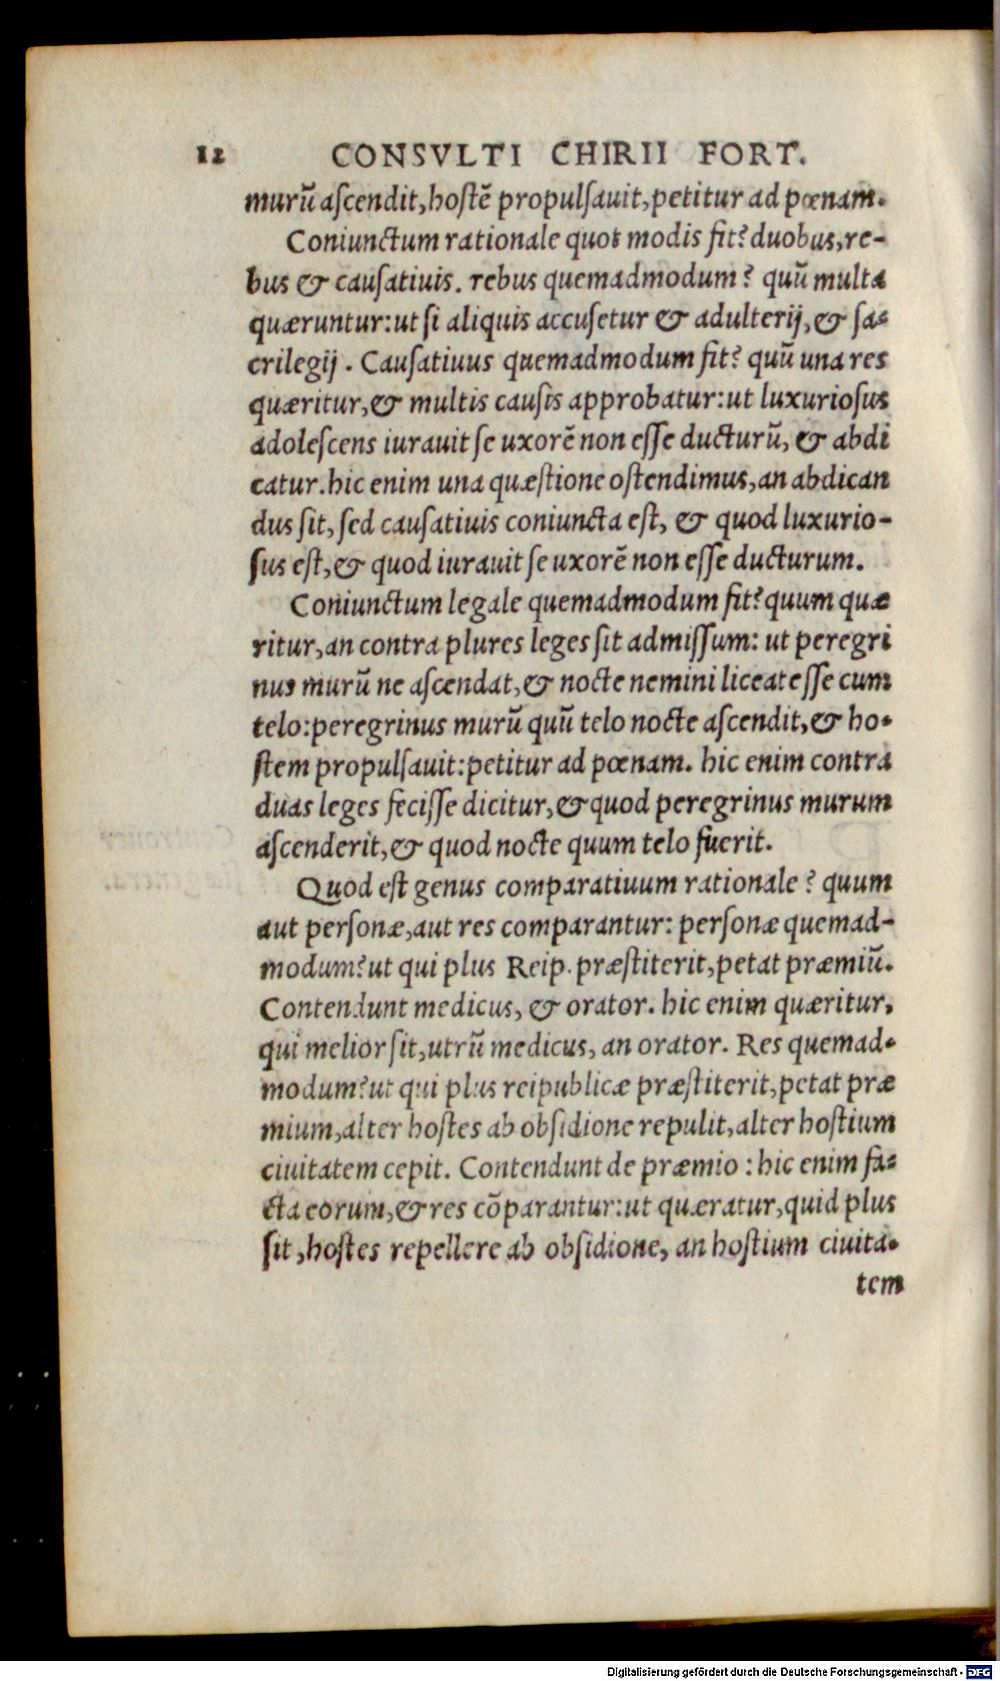 12 CONSVLTI CHIRII FORT.
murũ ascendit, hostẽ propulsauit, petitur ad pœnam.
Coniunctum rationale quot modis fit? duobus, re-
bus & causatiuis. rebus quemadmodum? quũ multa
quæruntur: ut si aliquis accusetur & adulterij, & sa-
crilegij. Causatiuus quemadmodum fit? quũ una res
quæritur, & multis causis approbatur: ut luxuriosus
adolescens iurauit se uxorẽ non esse ducturũ, & abdi
catur. hic enim una quæstione ostendimus, an abdican
dus sit, sed causatiuis coniuncta est, & quod luxurio-
sus est, & quod iurauit se uxorẽ non esse ducturum.
Coniunctum legale quemadmodum fit? quum quæ
ritur, an contra plures leges sit admissum: ut peregri
nus murũ ne ascendat, & nocte nemini liceat esse cum
telo: peregrinus murũ quũ telo nocte ascendit, & ho-
stem propulsauit: petitur ad pœnam. hic enim contra
duas leges fecisse dicitur, & quod peregrinus murum
ascenderit, & quod nocte quum telo fuerit.
Quod est genus comparatiuum rationale? quum
aut personæ, aut res comparantur: personæ quemad-
modum? ut qui plus Reip. præstiterit, petat præmiũ.
Contendunt medicus, & orator. hic enim quæritur,
qui melior sit, utrũ medicus, an orator. Res quemad-
modum? ut qui plus reipublicæ præstiterit, petat præ
mium, alter hostes ab obsidione repulit, alter hostium
ciuitatem cepit. Contendunt de præmio: hic enim fa-
cta eorum, & res cõparantur: ut quæratur, quid plus
sit, hostes repellere ab obsidione, an hostium ciuita-
tem
Digitalisierung gefördert durch die Deutsche Forschungsgemeinschaft - DFG